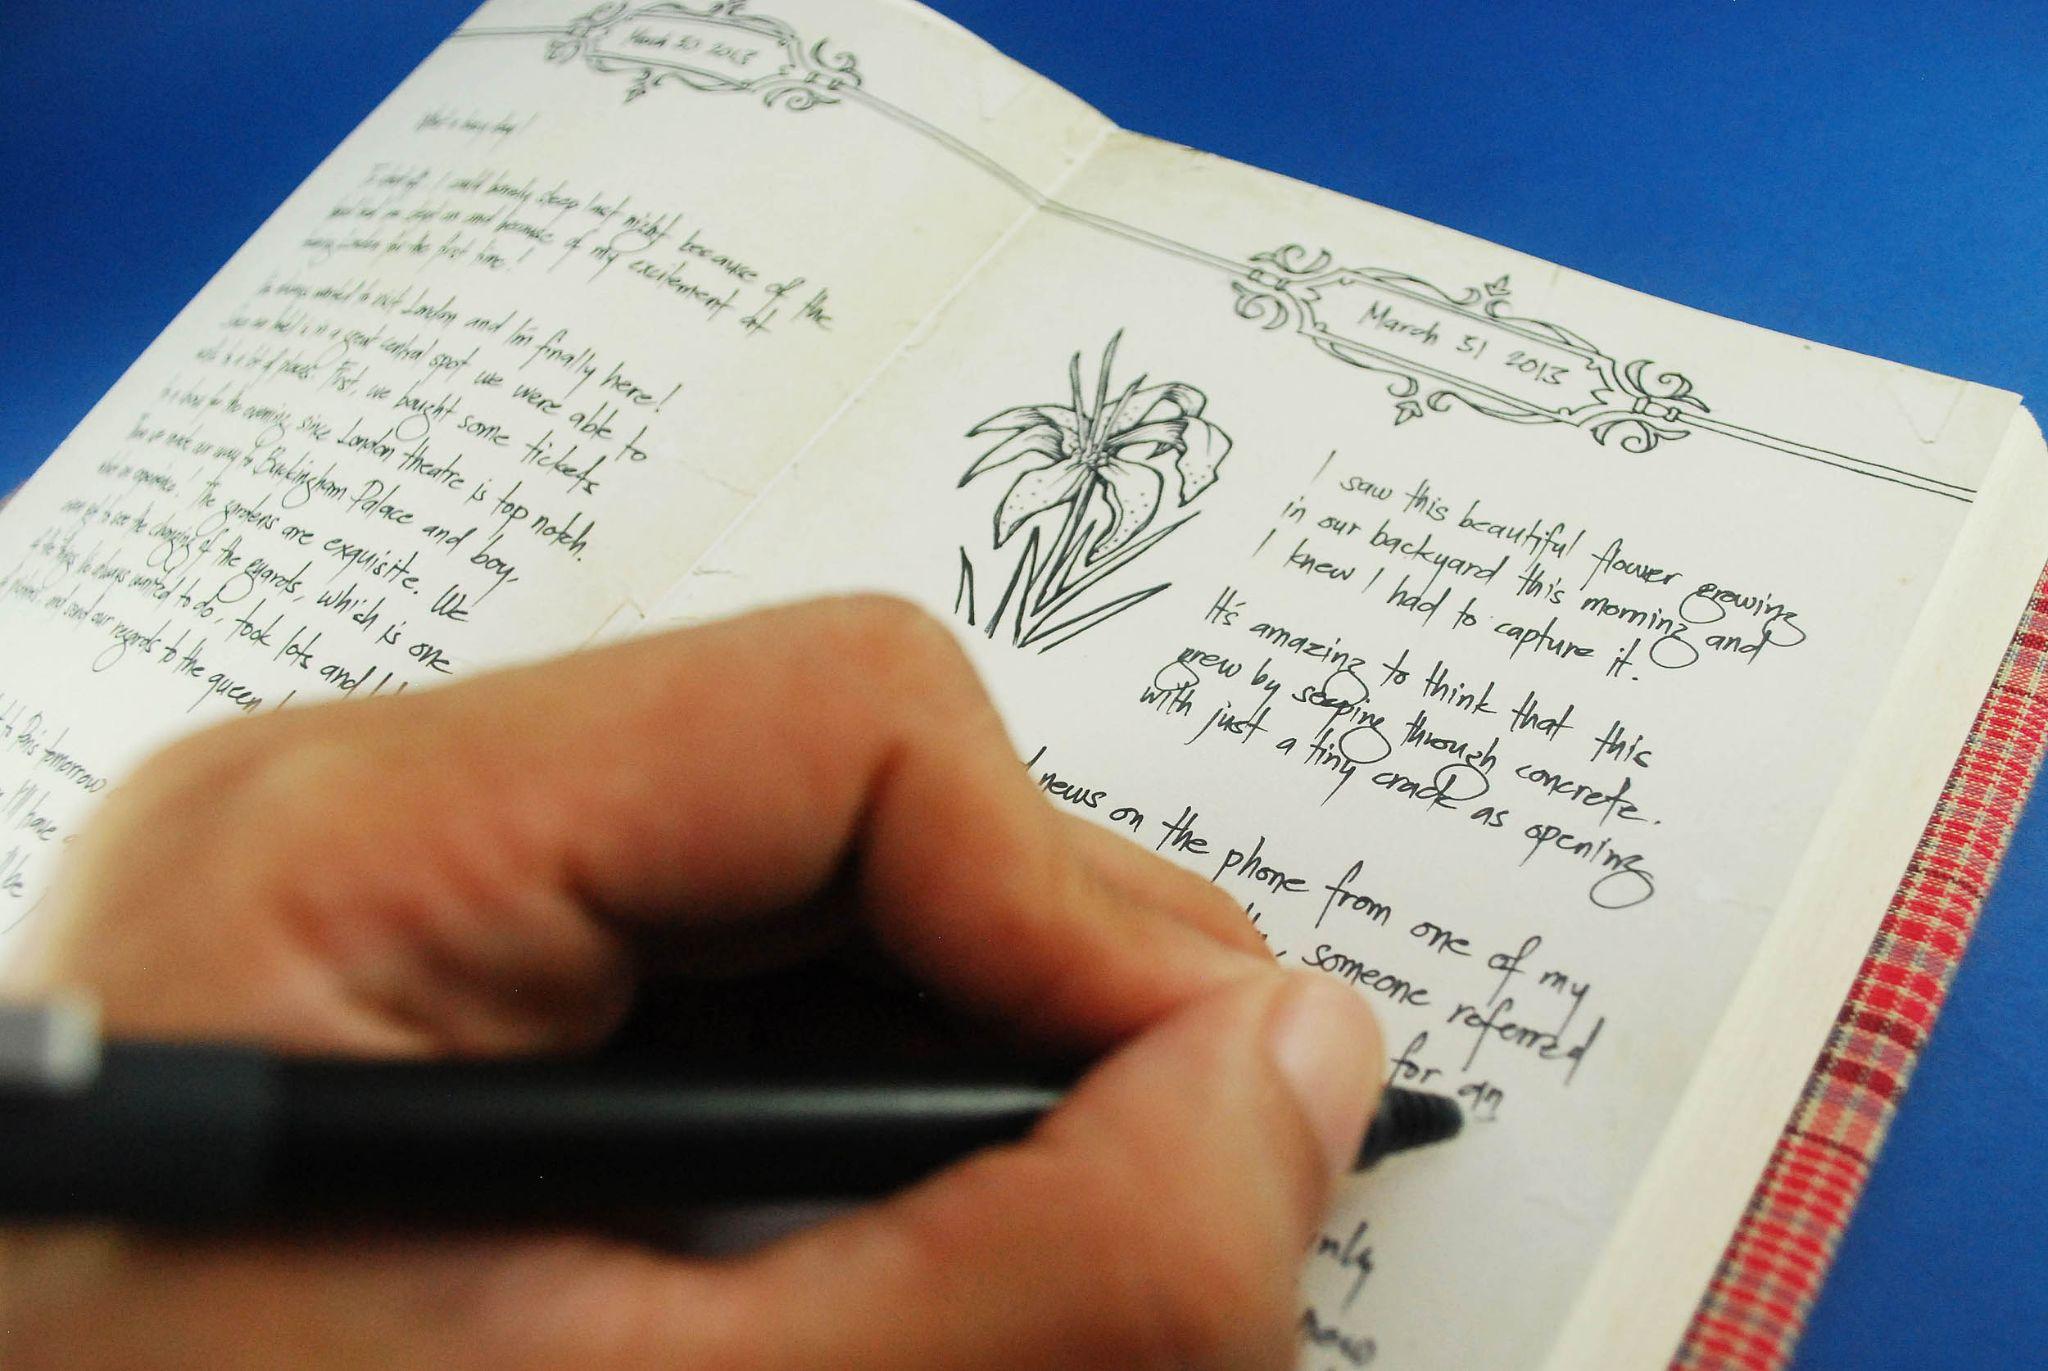 March 30 2013
What a busy day!
First off, I could barely sleep last night because of the
and because of my excitement at
seeing London for the first time!
I've always wanted to visit London and I'm finally here!
Since our hotel is in a great central spot we were able to
walk to a lot of places. First, we bought some tickets
to a show for the evening, since London theatre is top notch.
Then we made our way to Buckingham Palace and boy,
what an experience! The gardens are exquisite. We
even got to see the changing of the guards, which is one
of the things I've always wanted to do, took lots and
and send our regards to the queen
to Paris tomorrow
I'll have
be
March 31 2013
I saw this beautiful flower growing
in our backyard this morning and
I knew I had to capture it.
It's amazing to think that this
grew by seeping through concrete.
with just a tiny crack as opening
news on the phone from one of my
, someone referred
for an